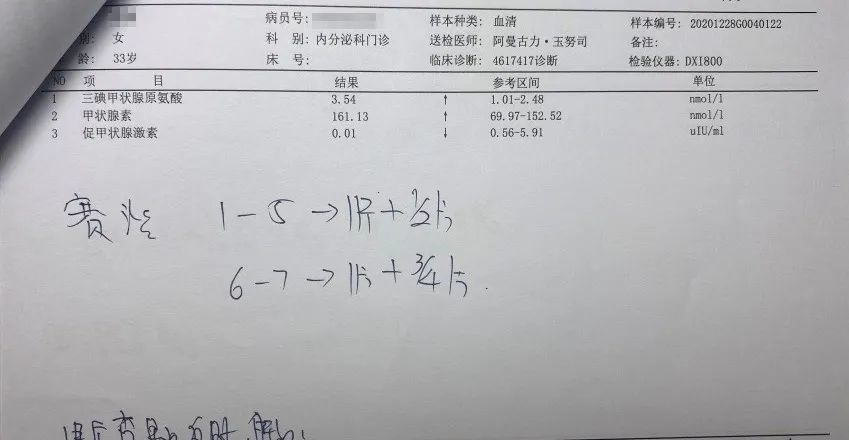 病员号: 样本种类: 血清 样本编号: 20201228G0040122
别: 女 科 别: 内分泌科门诊 送检医师: 阿曼古力·玉努司 备注:
龄: 33岁 床 号: 临床诊断: 4617417诊断 检验仪器: DXI800
NO 项 目 结果 参考区间 单位
1 三碘甲状腺原氨酸 3.54 ↑ 1.01-2.48 nmol/l
2 甲状腺素 161.13 ↑ 69.97-152.52 nmol/l
3 促甲状腺激素 0.01 ↓ 0.56-5.91 uIU/ml
赛治 1-5→1片+1/2片
6-7→1片+3/4片.